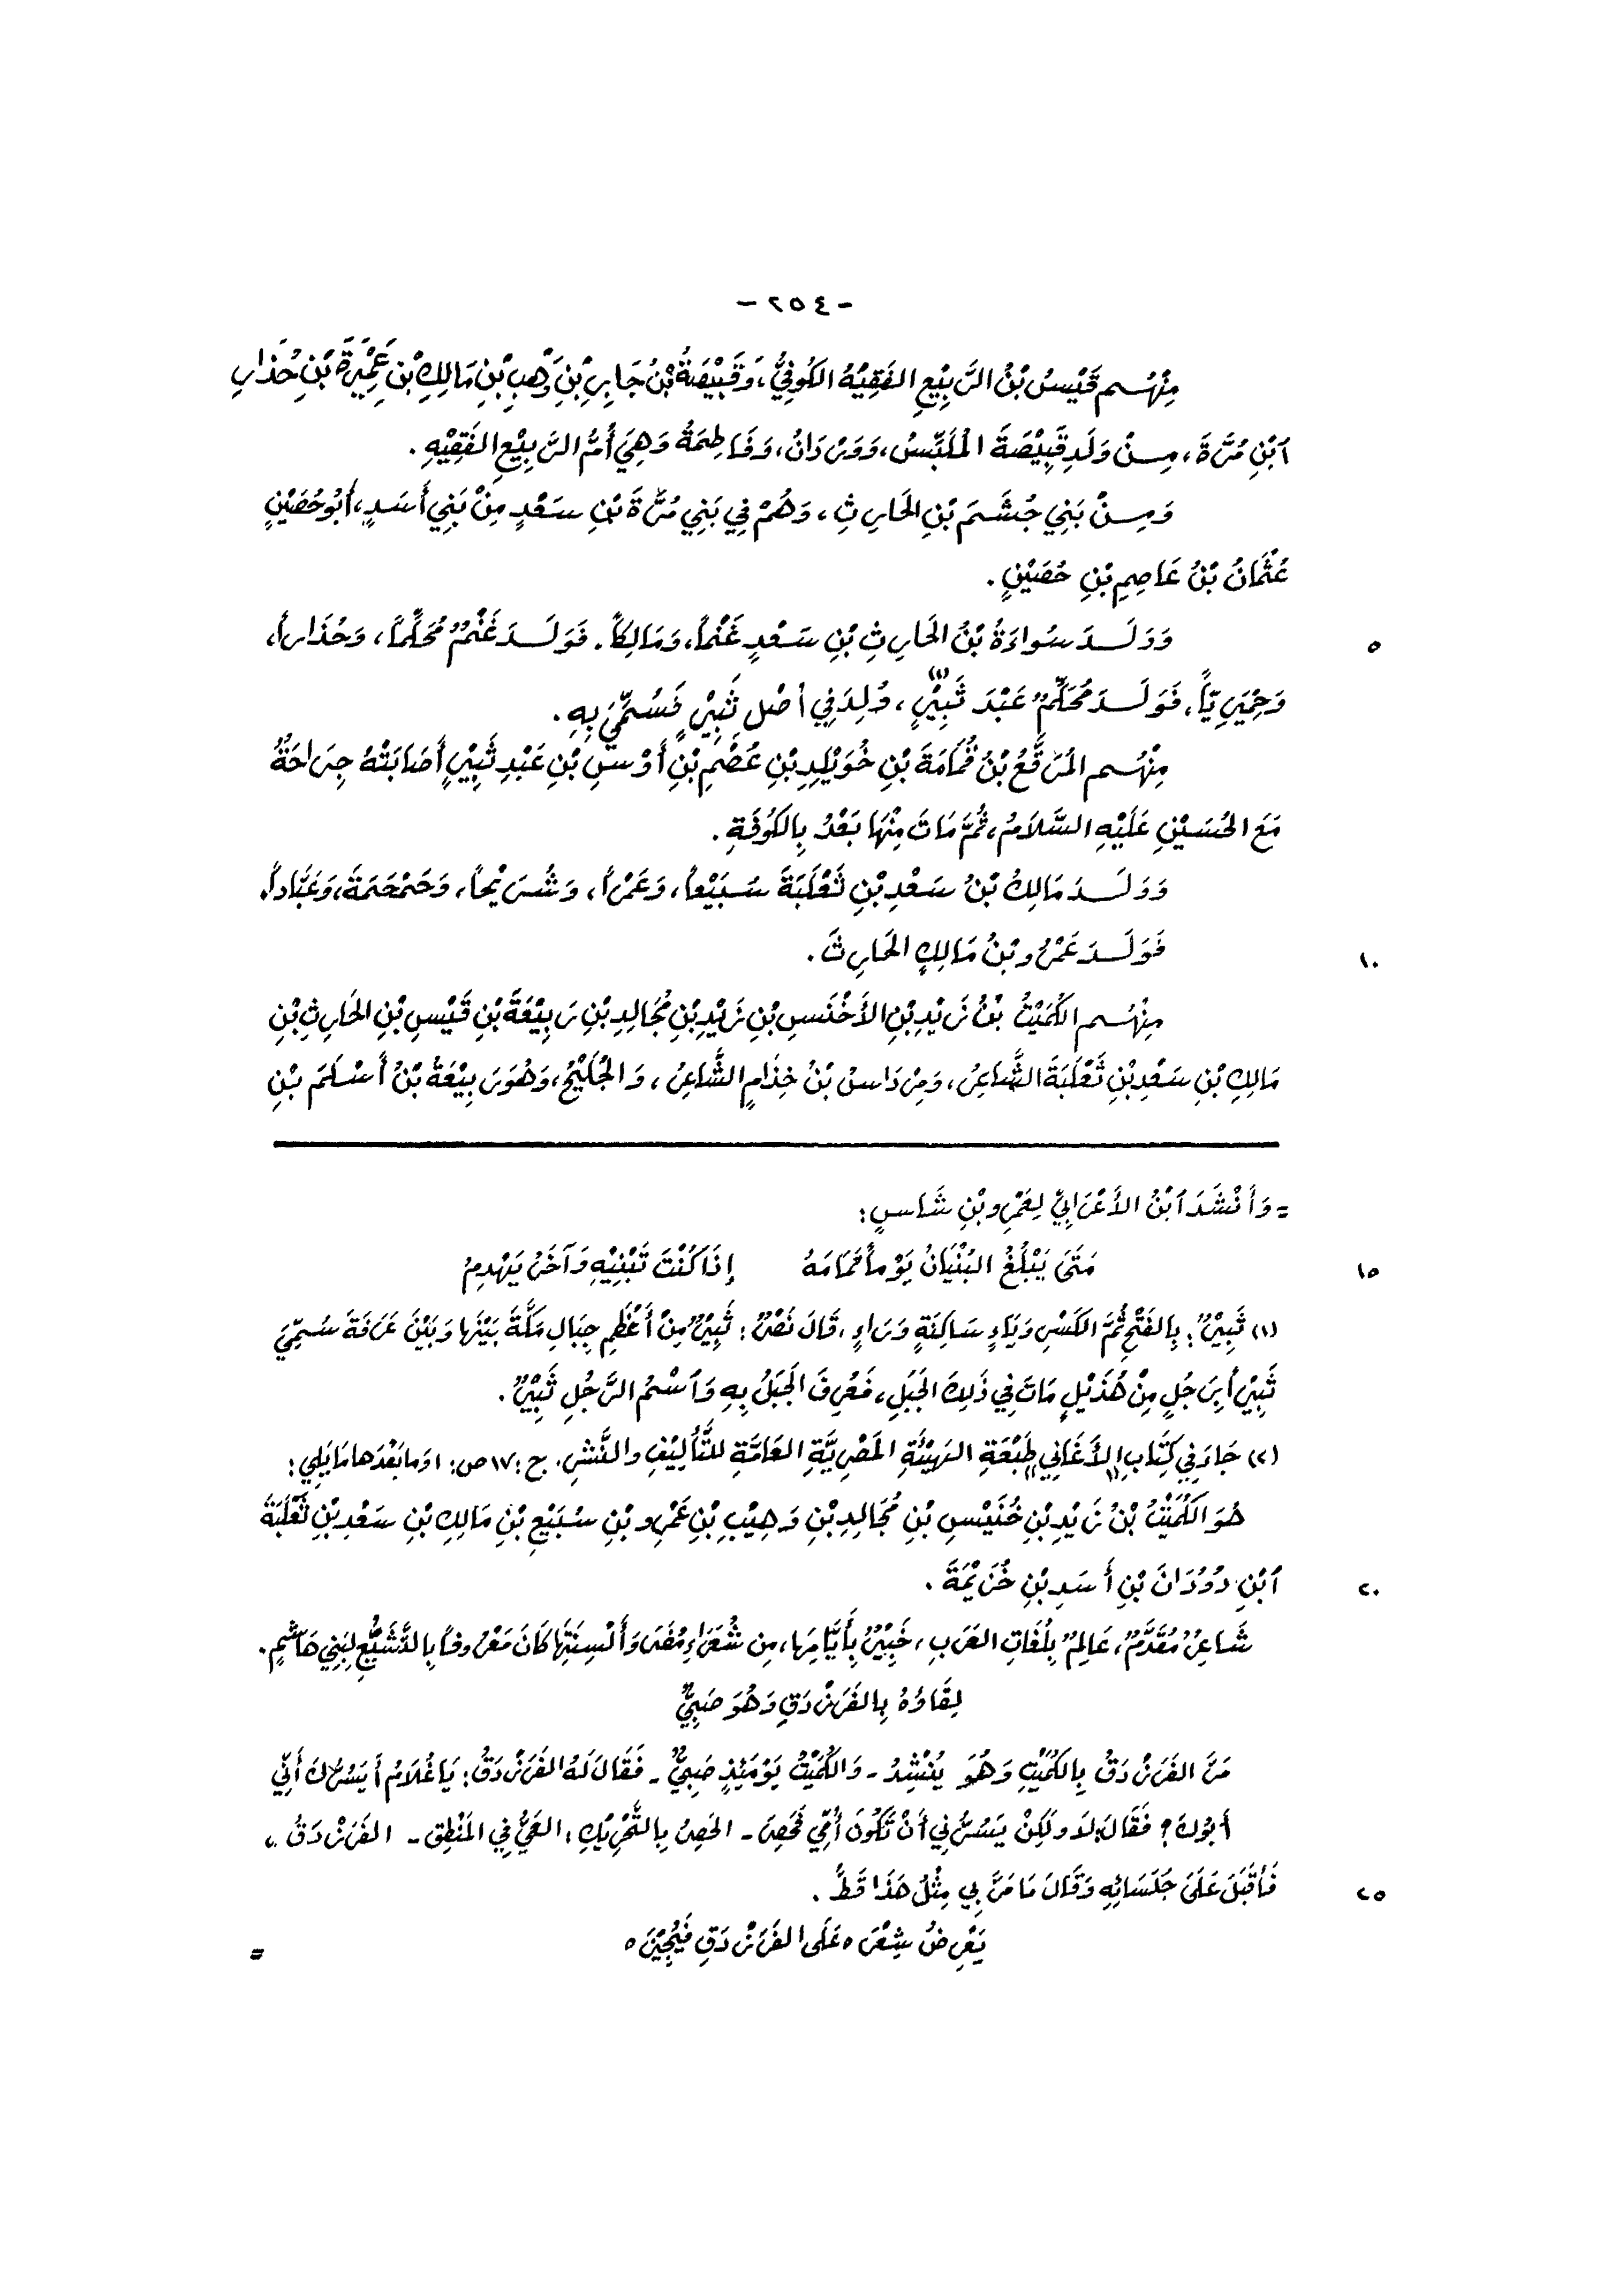 - ٢٥٤ -
مِنْهُم قَيْسُ بْنُ الرَّبِيْعِ الفَقِيْهُ الكُوفِيُّ، وَقَبِيْصَةُ بْنُ جَابِرِ بْنِ وَهْبِ بْنِ مَالِكِ بْنِ عَمِيْرَةَ بْنِ حُذَارِ
ٱبْنِ مُرَّةَ، مِنْ وَلَدِ قَبِيْصَةَ المُلَبِّسُ، وَوَرْدَانُ، وَفَاطِمَةُ وَهِيَ أُمُّ الرَّبِيْعِ الفَقِيْهِ.
وَمِنْ بَنِي جُشَمَ بْنِ الحَارِثِ، وَهُمْ فِي بَنِي مُرَّةَ بْنِ سَعْدٍ مِنْ بَنِي أَسَدٍ، أَبُو حُصَيْنٍ
عُثْمَانُ بْنُ عَاصِمِ بْنِ حُصَيْنٍ.
وَوَلَدَ سُواءَةُ بْنُ الحَارِثِ بْنِ سَعْدٍ غَنْماً، وَمَالِكاً. فَوَلَدَ غَنْمٌ مُحَلِّماً، وَحُذَاراً، ٥
وَحِمْيَرِيّاً، فَوَلَدَ مُحَلِّمٌ عَبْدَ ثَبِيْرٍ(١)، وُلِدَ فِي أصْلِ ثَبِيْرٍ فَسُمِّيَ بِهِ.
مِنْهُم المُرَقَّعُ بْنُ ثُمَامَةَ بْنِ خُوَيْلِدِ بْنِ عُصْمِ بْنِ أَوْسِ بْنِ عَبْدِ ثَبِيْرٍ أَصَابَتْهُ جِرَاحَةٌ
مَعَ الحُسَيْنِ عَلَيْهِ السَّلَامُ، ثُمَّ مَاتَ مِنْهَا بَعْدُ بِالكُوفَةِ.
وَوَلَدَ مَالِكُ بْنُ سَعْدِ بْنِ ثَعْلَبَةَ سُبَيْعاً، وَعَمْراً، وَشُرَيْحاً، وَحَمْحَمَةَ، وَعَبَّاداً.
فَوَلَدَ عَمْرُو بْنُ مَالِكٍ الحَارِثَ. ١٠
مِنْهُم الكُمَيْتُ بْنُ زَيْدِ بْنِ الأَخْنَسِ بْنِ زَيْدِ بْنِ مُجَالِدِ بْنِ رَبِيْعَةَ بْنِ قَيْسِ بْنِ الحَارِثِ بْنِ
مَالِكِ بْنِ سَعْدِ بْنِ ثَعْلَبَةَ الشَّاعِرُ، وَمِرْدَاسُ بْنُ خِذَامٍ الشَّاعِرُ، وَالجُلَيْحُ، وَهُوَ رَبِيْعَةُ بْنُ أَسْلَمَ بْنِ
= وَأَنْشَدَ ٱبْنُ الأَعْرَابِيِّ لِعَمْرِو بْنِ شَاسٍ:
مَتَى يَبْلُغُ البُنْيَانُ يَوْماً تَمَامَهُ إِذَا كُنْتَ تَبْنِيْهِ وَآخَرُ يَهْدِمُ ١٥
(١) ثَبِيْرٌ: بِالفَتْحِ ثُمَّ الكَسْرِ وَيَاءٍ سَاكِنَةٍ وَرَاءٍ، قَالَ نَصْرٌ: ثَبِيْرٌ مِنْ أَعْظَمِ جِبَالِ مَكَّةَ بَيْنَهَا وَبَيْنَ عَرَفَةَ سُمِّيَ
ثَبِيْراً بِرَجُلٍ مِنْ هُذَيْلٍ مَاتَ فِي ذَلِكَ الجَبَلِ، فَعُرِفَ الجَبَلُ بِهِ وَٱسْمُ الرَّجُلِ ثَبِيْرٌ.
(٢) جَاءَ فِي كِتَابِ "الأَغَانِي" طَبْعَةِ الهَيْئَةِ المَصْرِيَّةِ العَامَّةِ للتَّأْلِيْفِ والنَّشْرِ. ج: ١٧ ص: ١ وَمَا بَعْدَها مَا يَلِي:
هُوَ الكُمَيْتُ بْنُ زَيْدِ بْنِ خُنَيْسِ بْنِ مُجَالِدِ بْنِ وَهِيْبِ بْنِ عَمْرِو بْنِ سُبَيْعِ بْنِ مَالِكِ بْنِ سَعْدِ بْنِ ثَعْلَبَةَ
ٱبْنِ دُوْدَانَ بْنِ أَسَدِ بْنِ خُزَيْمَةَ. ٢٠
شَاعِرٌ مُقَدَّمٌ، عَالِمٌ بِلُغَاتِ العَرَبِ، خَبِيْرٌ بِأَيَّامِهَا، مِن شُعَرَاءِ مُضَرَ وَأَلْسِنَتِهَا كَانَ مَعْرُوفاً بِالتَّشَيُّعِ لِبَنِي هَاشِمٍ.
لِقَاؤُهُ بِالفَرَزْدَقِ وَهُوَ صَبِيٌّ
مَرَّ الفَرَزْدَقُ بِالكُمَيْتِ وَهُوَ يُنْشِدُ - وَالكُمَيْتُ يَوْمَئِذٍ صَبِيٌّ - فَقَالَ لَهُ الفَرَزْدَقُ: يَا غُلَامُ أَيَسُرُّكَ أَنِّي
أَبُوْكَ؟ فَقَالَ: لَا وَلَكِنْ يَسُرُّنِي أَنْ تَكُونَ أُمِّي فَحَصِرَ - الحَصِرُ بِالتَّحْرِيْكِ: العَيُّ فِي المَنْطِقِ - الفَرَزْدَقُ،
فَأَقْبَلَ عَلَى جُلَسَائِهِ وَقَالَ مَا مَرَّ بِي مِثْلُ هَذَا قَطُّ. ٢٥
يَعْرِضُ شِعْرَه عَلَى الفَرَزْدَقِ فَيُجِيْزَه
=